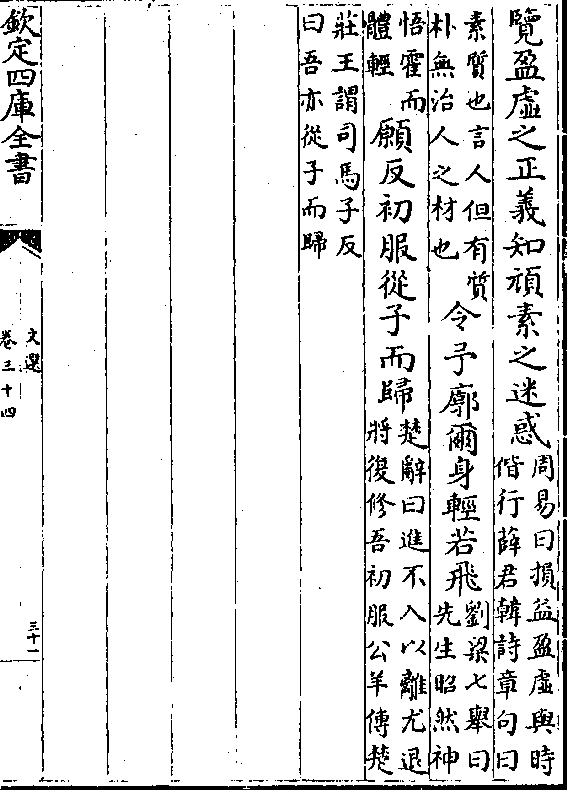 覽盈虛之正義知頑素之迷惑周易曰損益盈虛與時
偕行薛君韓詩章句曰
素質也言人但有質
朴無治人之材也
令予廓爾身輕若飛劉梁七舉曰
先生昭然神
悟霍而
體輕
願反初服從子而歸楚辭曰進不入以離尤退
將復修吾初服公羊傳楚
莊王謂司馬子反
曰吾亦從子而歸
欽定四庫全書
文選
卷三十四
三十一